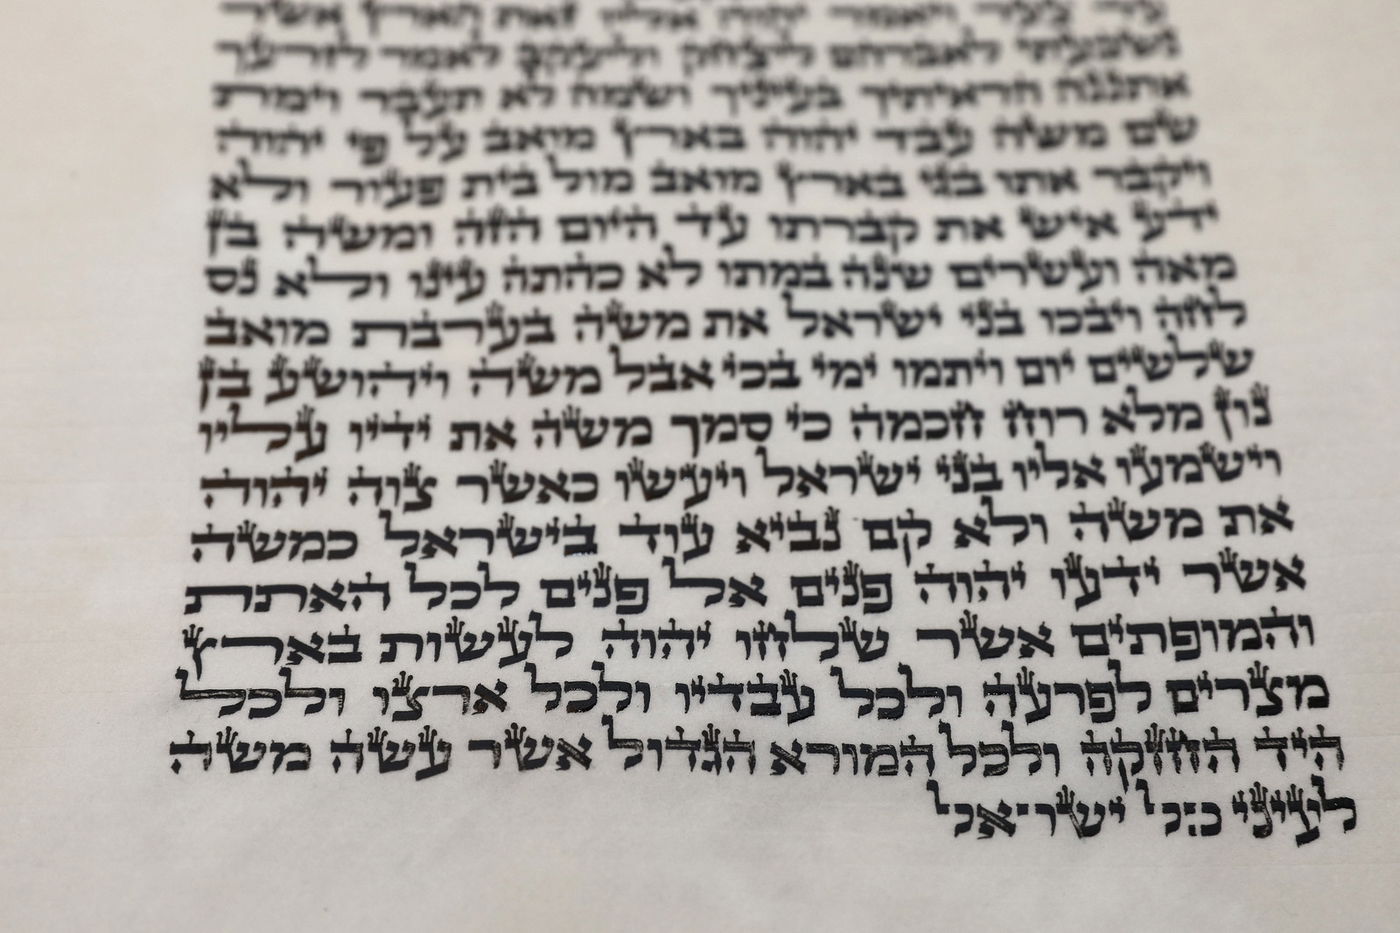 עד צער ויאמר יהוה אליו זאת הארץ אשר
נשבעתי לאברהם ליצחק וליעקב לאמר לזרעך
אתננה הראיתיך בעיניך ושמה לא תעבר וימת
שם משה עבד יהוה בארץ מואב על פי יהוה
ויקבר אתו בגי בארץ מואב מול בית פעור ולא
ידע איש את קברתו עד היום הזה ומשה בן
מאה ועשרים שנה במתו לא כהתה עינו ולא נס
לחה ויבכו בני ישראל את משה בערבת מואב
שלשים יום ויתמו ימי בכי אבל משה ויהושע בן
נון מלא רוח חכמה כי סמך משה את ידיו עליו
וישמעו אליו בני ישראל ויעשו כאשר צוה יהוה
את משה ולא קם נביא עוד בישראל כמשה
אשר ידעו יהוה פנים אל פנים לכל האתת
והמופתים אשר שלחו יהוה לעשות בארץ
מצרים לפרעה ולכל עבדיו ולכל ארצו ולכל
היד החזקה ולכל המורא הגדול אשר עשה משה
לעיני כל ישראל